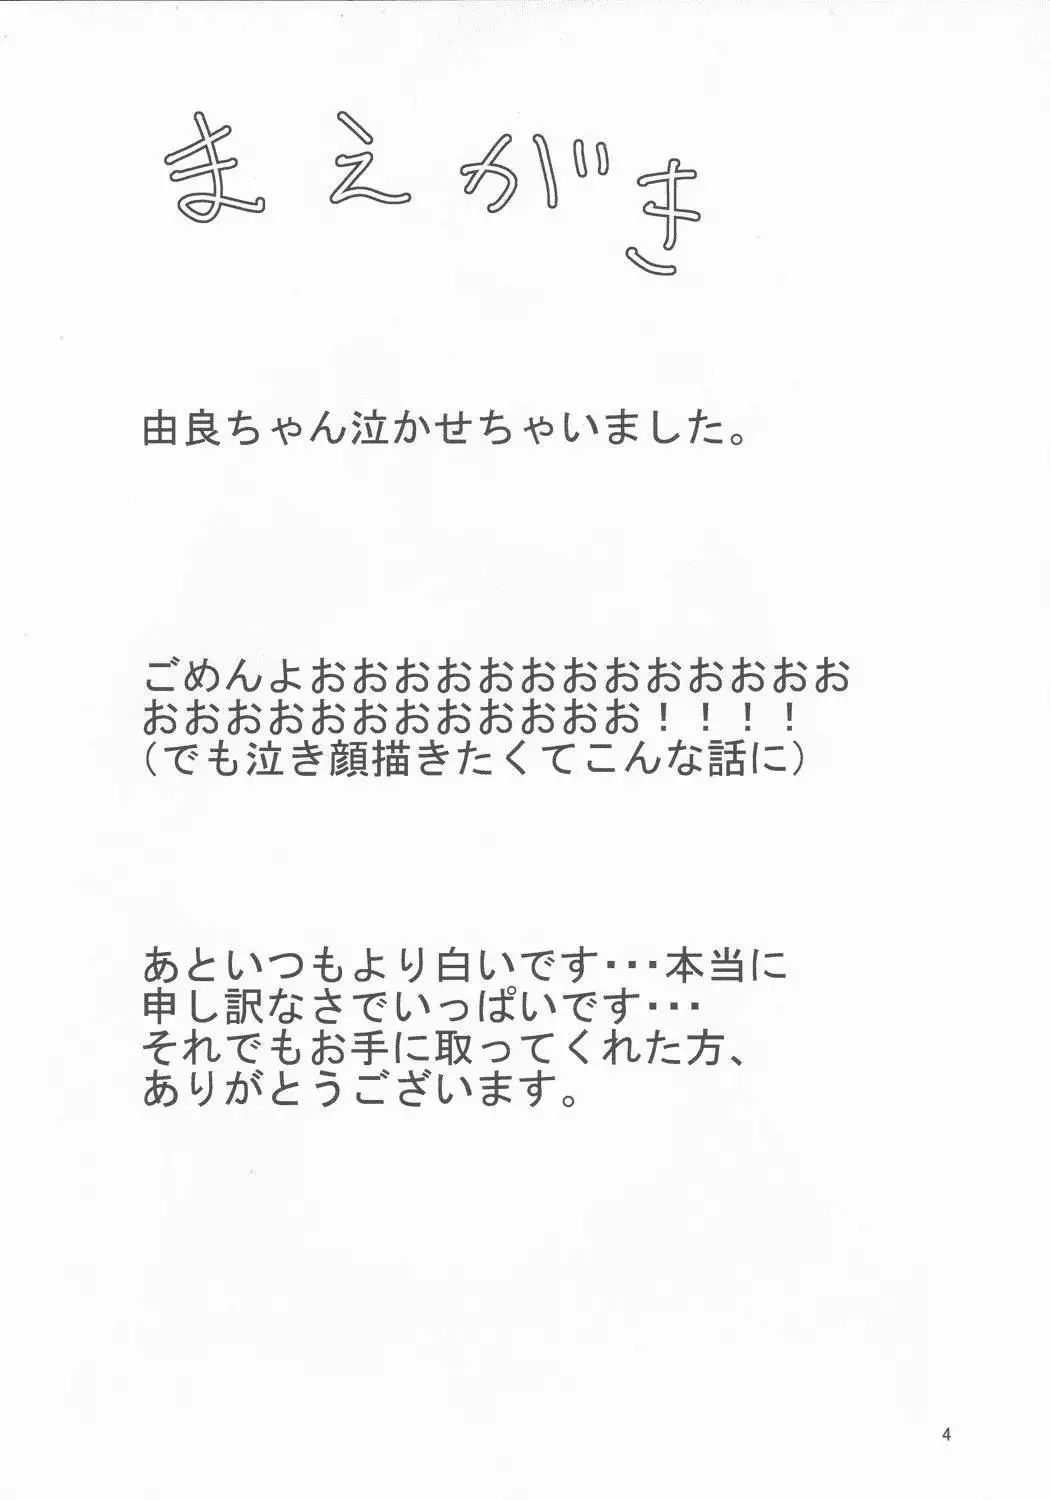 まえがき
由良ちゃん泣かせちゃいました。
ごめんよおおおおおおおおおおおおお
おおおおおおおおおおおお！！！！
（でも泣き顔描きたくてこんな話に）
あといつもより白いです・・・本当に
申し訳なさでいっぱいです・・・
それでもお手に取ってくれた方、
ありがとうございます。
4